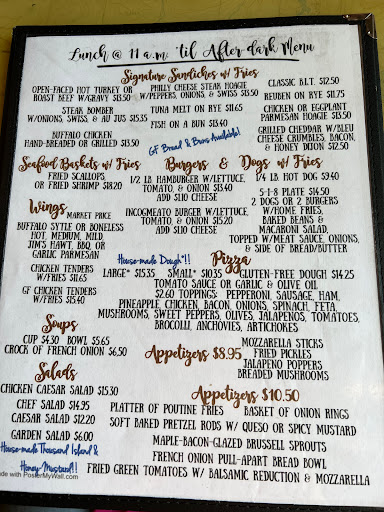 Lunch @ 11 a.m. 'til After dark Menu
Signature Sandiches w/ Fries
OPEN-FACED HOT TURKEY OR
ROAST BEEF W/GRAVY $13.50
STEAK BOMBER
W/ONIONS, SWISS, & AU JUS $15.35
BUFFALO CHICKEN
HAND-BREADED OR GRILLED $13.50
PHILLY CHEESE STEAK HOAGIE
W/PEPPERS, ONIONS, & SWISS $13.50
TUNA MELT ON RYE $11.65
FISH ON A BUN $13.40
GF Bread & Buns Available!
CLASSIC B.L.T. $12.50
REUBEN ON RYE $11.75
CHICKEN OR EGGPLANT
PARMESAN HOAGIE $13.50
GRILLED CHEDDAR W/BLEU
CHEESE CRUMBLES, BACON,
& HONEY DIJON $12.50
Seafood Baskets w/ Fries
FRIED SCALLOPS,
OR FRIED SHRIMP $18.20
Burgers & Dogs w/ Fries
1/2 LB. HAMBURGER W/LETTUCE,
TOMATO, & ONION $13.40
ADD $1.10 CHEESE
INCOGMEATO BURGER W/LETTUCE,
TOMATO, & ONION $15.20
ADD $1.10 CHEESE
1/4 LB. HOT DOG $9.40
5-1-8 PLATE $14.50
2 DOGS OR 2 BURGERS
W/HOME FRIES,
BAKED BEANS &
MACARONI SALAD,
TOPPED W/MEAT SAUCE, ONIONS,
& SIDE OF BREAD/BUTTER
Wings
MARKET PRICE
BUFFALO SYTLE OR BONELESS
HOT, MEDIUM, MILD
JIM'S HAWT, BBQ, OR
GARLIC PARMESAN
CHICKEN TENDERS
W/FRIES $11.65
GF CHICKEN TENDERS
W/FRIES $15.40
House-made Dough*!!
Pizza
LARGE* $15.35 SMALL* $10.35 GLUTEN-FREE DOUGH $14.25
TOMATO SAUCE OR GARLIC & OLIVE OIL
$2.60 TOPPINGS: PEPPERONI, SAUSAGE, HAM,
PINEAPPLE, CHICKEN, BACON, ONIONS, SPINACH, FETA,
MUSHROOMS, SWEET PEPPERS, OLIVES, JALAPENOS, TOMATOES,
BROCOLLI, ANCHOVIES, ARTICHOKES
Soups
CUP $4.30 BOWL $5.65
CROCK OF FRENCH ONION $6.50
Appetizers $8.95
MOZZARELLA STICKS
FRIED PICKLES
JALAPENO POPPERS
BREADED MUSHROOMS
Salads
CHICKEN CAESAR SALAD $15.30
CHEF SALAD $14.95
CAESAR SALAD $12.20
GARDEN SALAD $6.00
House-made Thousand Island &
Honey-Mustard!!
Appetizers $10.50
PLATTER OF POUTINE FRIES BASKET OF ONION RINGS
SOFT BAKED PRETZEL RODS W/ QUESO OR SPICY MUSTARD
MAPLE-BACON-GLAZED BRUSSELL SPROUTS
FRENCH ONION PULL-APART BREAD BOWL
FRIED GREEN TOMATOES W/ BALSAMIC REDUCTION & MOZZARELLA
de with PosterMyWall.com